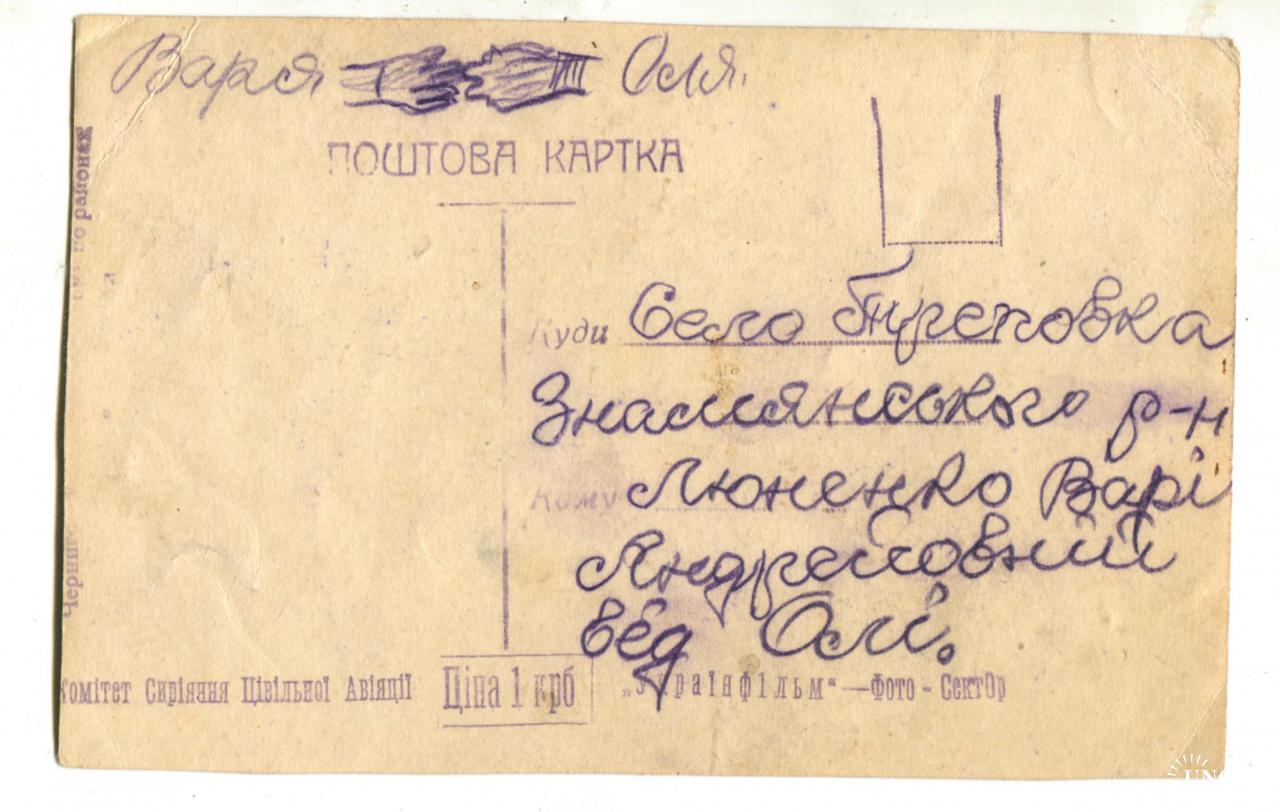 Варя Оля.
ПОШТОВА КАРТКА
по районах
Куди Село Треповка
Знамянського р-н
Кому Люненко Варі
Андреєовній
від Олі.
Комітет Сприяння Цівільної Авіяції Ціна 1 крб „Українфільм“—Фото-Сектор